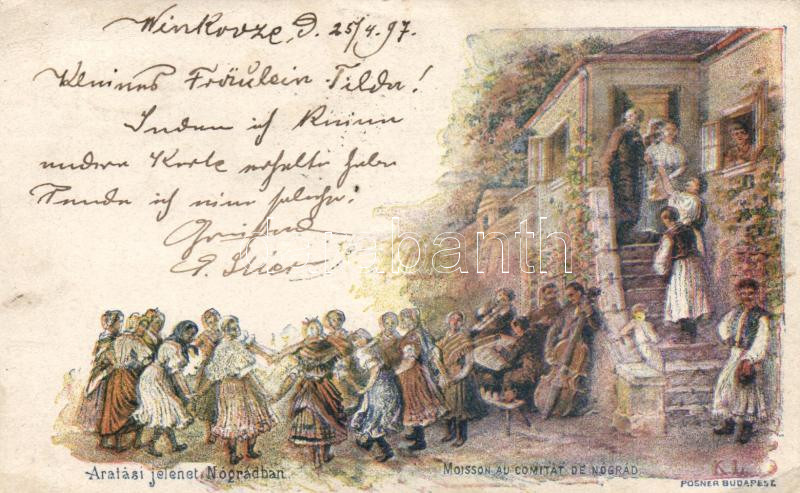 Winkovze, D. 25/4. 97.
Kleines Fräulein Tilda!
Indem ich keine
andere Karte erhalte habe
sende ich eine solche!
darabanth
Aratási jelenet Nógrádban.
MOISSON AU COMITAT DE NÓGRÁD.
K. L.
POSNER BUDAPEST.